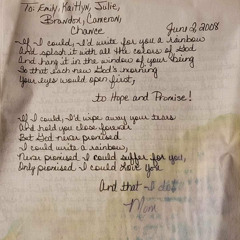 To: Emily, Kaitlyn, Julie,
Brandon, Cameron,
Chance
June 2, 2008
If I could, I'd write for you a rainbow
And splash it with all the colors of God
And hang it in the window of your being
So that each new God's morning
Your eyes would open first,
to Hope and Promise!
If I could, I'd wipe away your tears
And hold you close forever
But God never promised
I could write a rainbow,
Never promised I could suffer for you,
Only promised I could love you
And that I do!
Mom